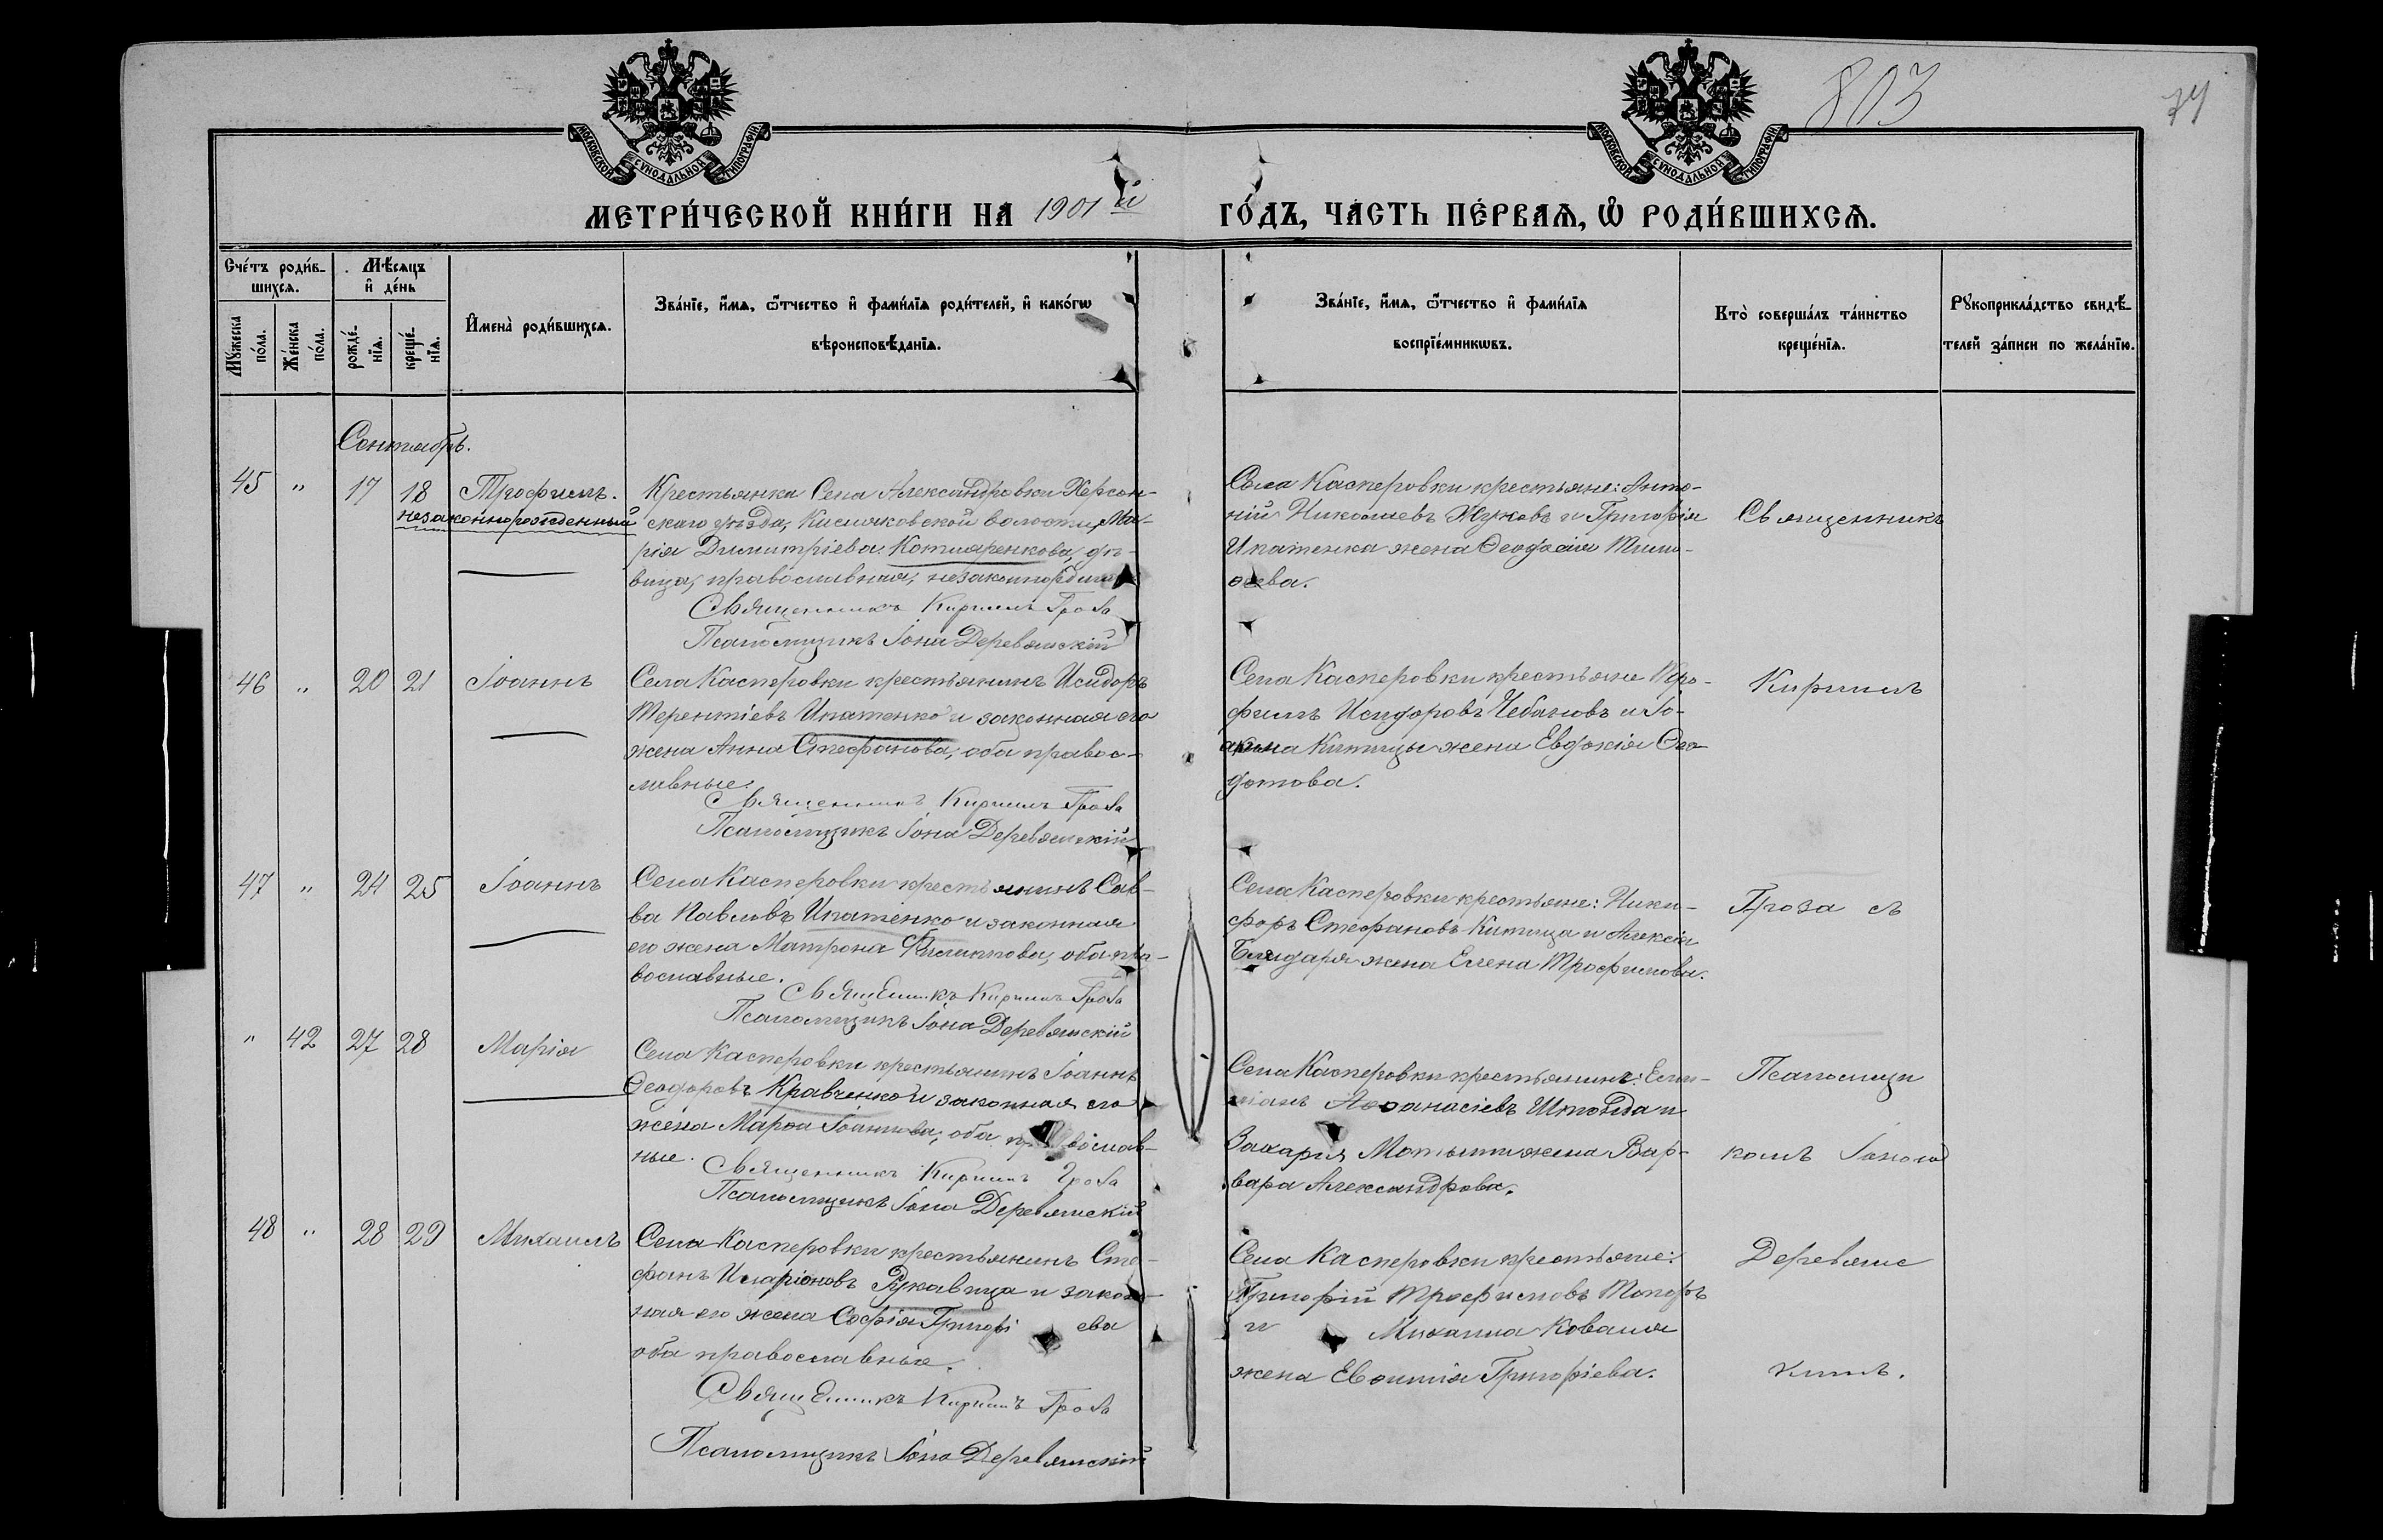 803
74
МОСКОВСКОЙ СѴНОДАЛЬНОЙ ТИПОГРАФІИ
МОСКОВСКОЙ СѴНОДАЛЬНОЙ ТИПОГРАФІИ
МЕТРИ́ЧЕСКОЙ КНИ́ГИ НА 1901й ГО́ДЪ, ЧА́СТЬ ПЕ́РВАѦ, Ѡ҆ РОДИ́ВШИХСѦ.
Сче́тъ роди́в-
шихсѧ.
Мѣ́сѧцъ
и҆ де́нь
Мꙋ́жеска
по́ла.
Же́нска
по́ла.
рожде́-
нїѧ.
креще́-
нїѧ.
И҆мена̀ роди́вшихсѧ.
Зва́нїе, и҆́мѧ, ѻ҆́тчество и҆ фами́лїѧ роди́телей, и҆ како́гѡ
вѣроисповѣ́данїѧ.
Зва́нїе, и҆́мѧ, ѻ҆́тчество и҆ фами́лїѧ
воспрїе́мникѡвъ.
Кто̀ соверша́лъ та́инство
креще́нїѧ.
Рꙋкоприкла́дство свидѣ́-
телей за́писи по жела́нїю.
Сентябрь.
45 " 17 18 Трофимъ.
незаконнорожденный
Крестьянка Села Александровки Херсон-
скаго уѣзда, Кисляковской волости, Ма-
рія Димитріева Котляренкова, дѣ-
вица, православная,
Священникъ Кириллъ Гроза
Псаломщикъ Іона Деревянскій
Села Касперовки крестьяне: Анто-
ній Николаевъ Жуковъ и Григорія
Ипатенка жена Ѳеодосія Тимо-
ѳеева.
Священникъ
46 " 20 21 Іоаннъ
Села Касперовки крестьянинъ Исидоръ
Терентіевъ Ипатенко и законная его
жена Анна Стефанова, оба правос-
лавные.
Священникъ Кириллъ Гроза
Псаломщикъ Іона Деревянскій
Села Касперовки крестьяне Тро-
фимъ Исидоровъ Чебановъ и Іо-
акима Китицы жена Евдокія Ѳео-
дотова.
Кириллъ
47 " 24 25 Іоаннъ
Села Касперовки крестьянинъ Сав-
ва Павловъ Ипатенко и законная
его жена Матрона Филиппова, оба пра-
вославные.
Священникъ Кириллъ Гроза
Псаломщикъ Іона Деревянскій
Села Касперовки крестьяне: Ники-
форъ Стефановъ Китица и Алексія
жена Елена Трофимова.
Гроза съ
" 42 27 28 Марія
Села Касперовки крестьянинъ Іоаннъ
Ѳеодоровъ Кравченко и законная его
жена Марѳа Іоаннова, оба православ-
ные.
Священникъ Кириллъ Гроза
Псаломщикъ Іона Деревянскій
Села Касперовки крестьянинъ:
Аѳанасіевъ и
Захарія жена Вар-
вара Александрова.
Псаломщи
комъ Іоною
48 " 28 29 Михаилъ
Села Касперовки крестьянинъ Сте-
фанъ Иларіоновъ Рукавица и закон-
ная его жена Софія Григоріева
оба православные.
Священникъ Кириллъ Гроза
Псаломщикъ Іона Деревянскій
Села Касперовки крестьяне:
Григорій Трофимовъ Топоръ
и Михаила Коваля
жена Евѳимія Григоріева.
Деревянс
кимъ.